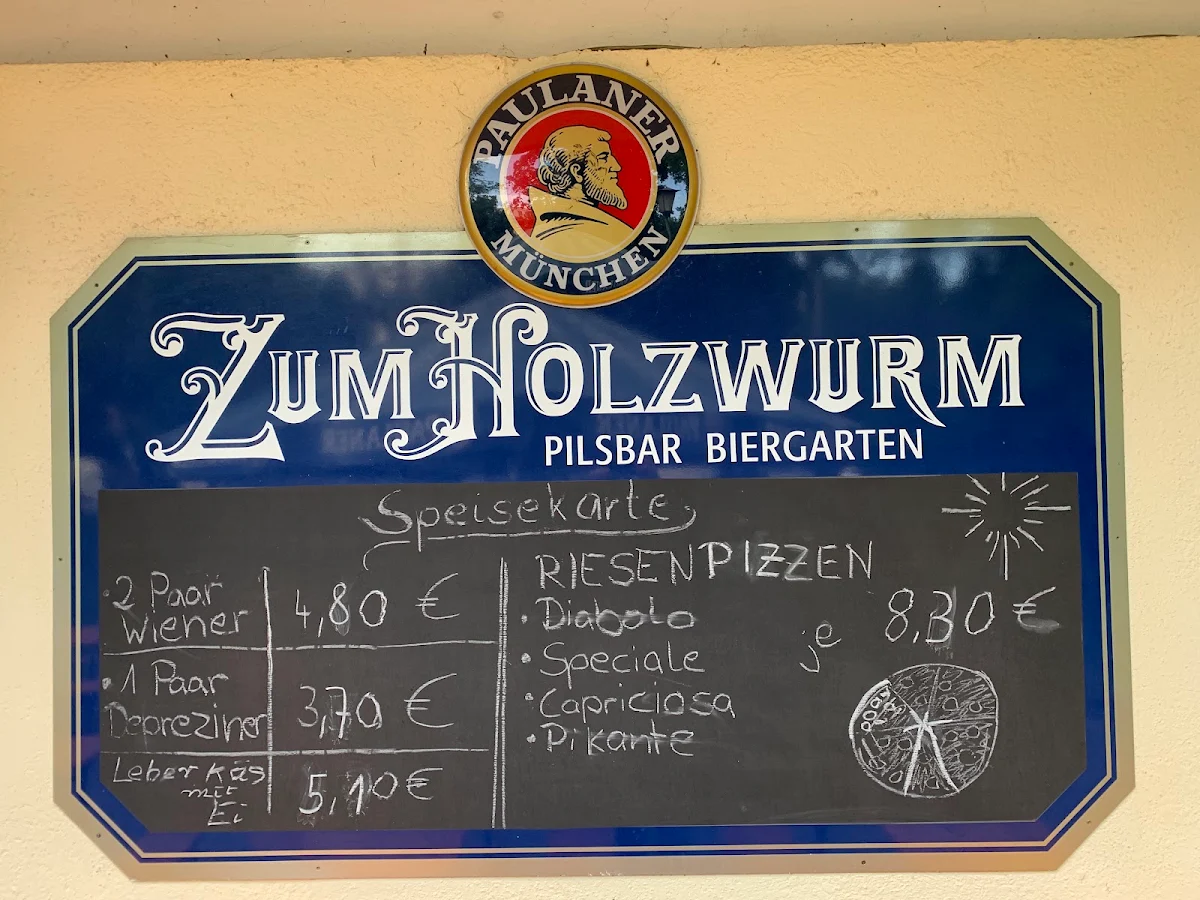 PAULANER
MÜNCHEN
ZUM HOLZWURM
PILSBAR BIERGARTEN
Speisekarte
• 2 Paar
Wiener
4,80 €
• 1 Paar
Depreziner
3,70 €
Leberkäs
mit
Ei
5,10 €
RIESENPIZZEN
• Diabolo
• Speciale
• Capriciosa
• Pikante
je 8,30 €